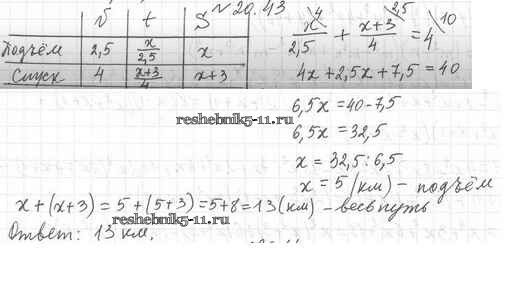 № 20.43
v t S
Подъём 2,5 x/2,5 x
Спуск 4 (x+3)/4 x+3
x\4/2,5 + (x+3)\2,5/4 = 4\10
4x+2,5x+7,5=40
6,5x=40-7,5
6,5x=32,5
x=32,5:6,5
x=5(км)- подъём
x+(x+3)=5+(5+3)=5+8=13(км) - весь путь
Ответ: 13 км.
reshebnik5-11.ru
reshebnik5-11.ru